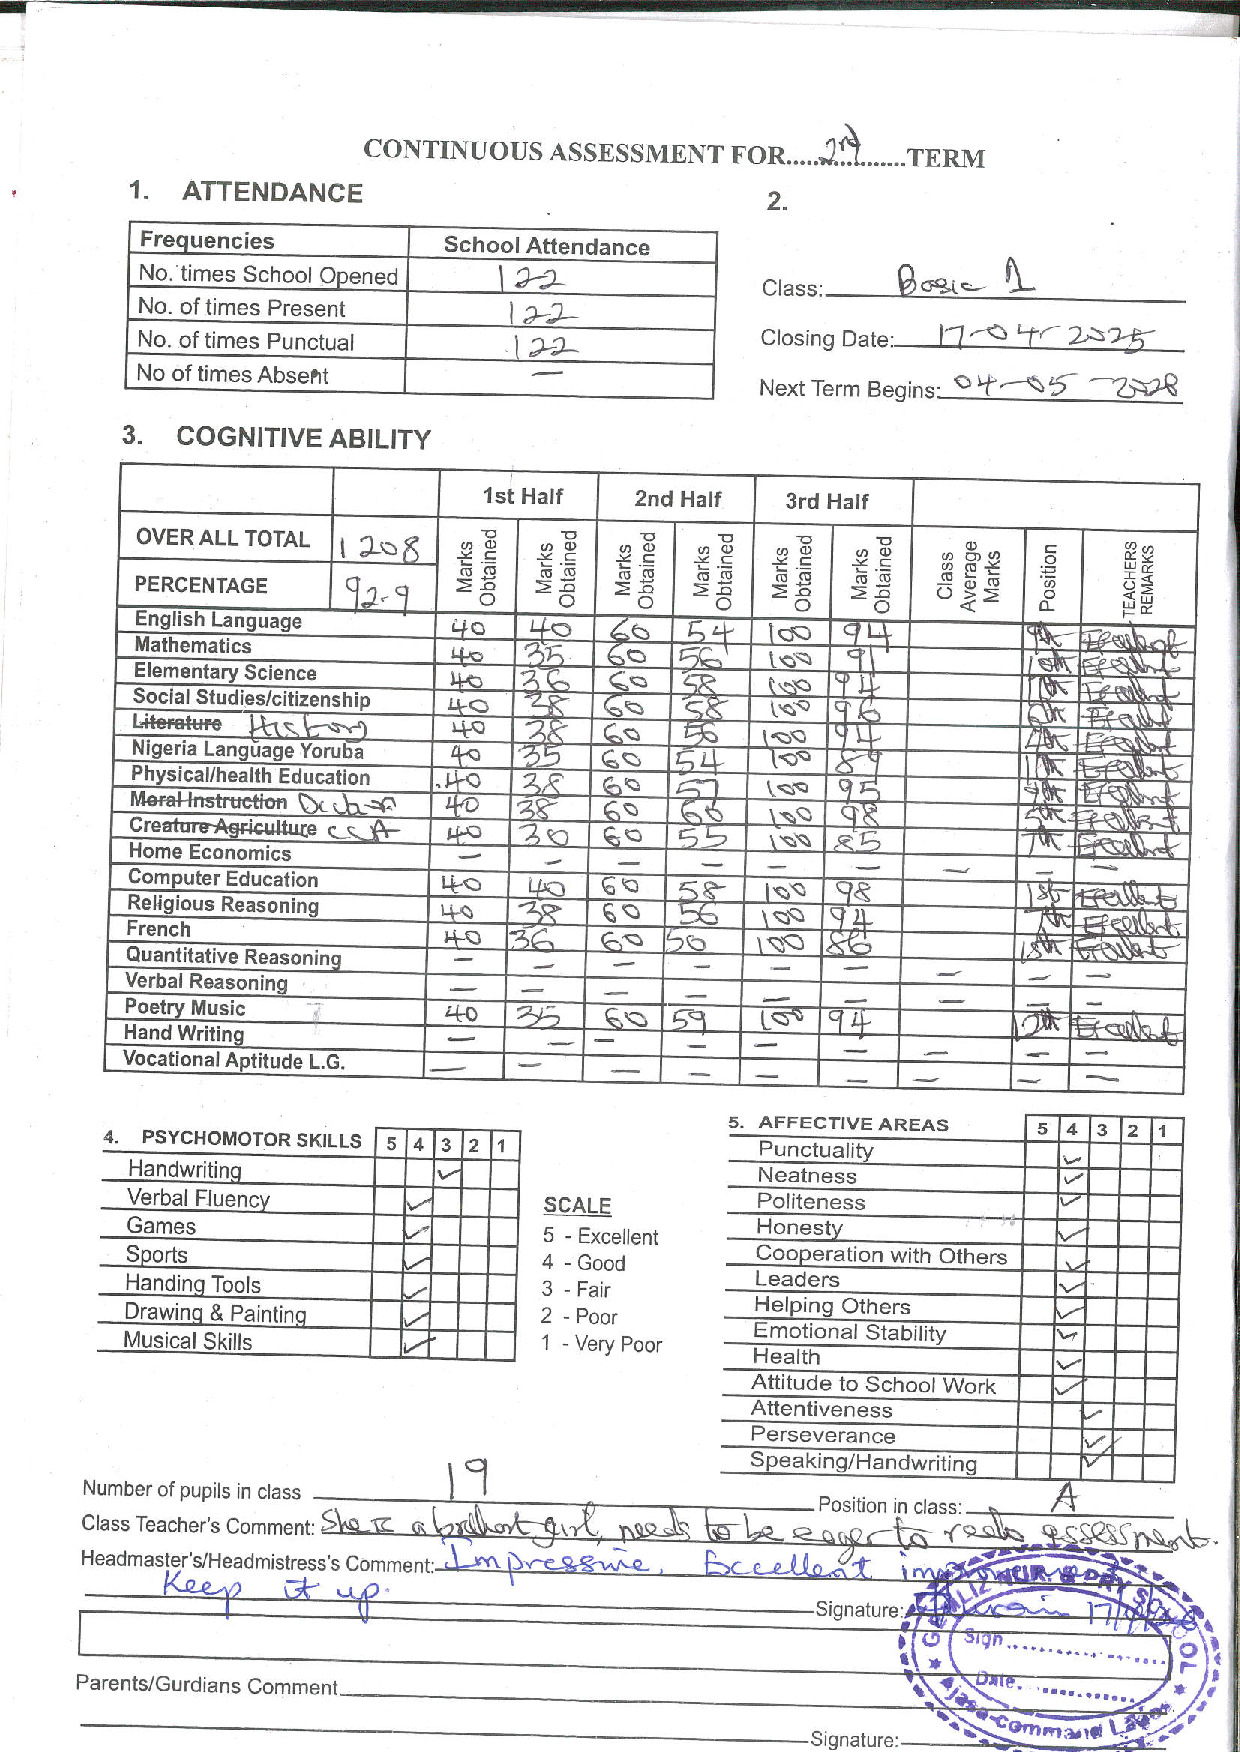 CONTINUOUS ASSESSMENT FOR.....2nd..........TERM
1. ATTENDANCE
2.
Frequencies School Attendance
No. times School Opened 122
No. of times Present 122
No. of times Punctual 122
No of times Absent —
Class: Basic 1
Closing Date: 17-04-2025
Next Term Begins: 04-05-2028
3. COGNITIVE ABILITY
1st Half 2nd Half 3rd Half
OVER ALL TOTAL 1208
PERCENTAGE 92.9
Marks Obtained Marks Obtained Marks Obtained Marks Obtained Marks Obtained Marks Obtained Class Average Marks Position TEACHERS REMARKS
English Language 40 40 60 54 100 94 9th Excellent
Mathematics 40 35 60 56 100 91 10th Excellent
Elementary Science 40 36 60 58 100 94 Excellent
Social Studies/citizenship 40 38 60 58 100 96 Excellent
Literature History 40 38 60 56 100 94 Excellent
Nigeria Language Yoruba 40 35 60 54 100 89 Excellent
Physical/health Education 40 38 60 57 100 95 Excellent
Moral Instruction 40 38 60 60 100 98 5th Excellent
Creature Agriculture CCA 40 30 60 55 100 85 7th Excellent
Home Economics — — — — — — — — —
Computer Education 40 40 60 58 100 98 1st Excellent
Religious Reasoning 40 38 60 56 100 94 7th Excellent
French 40 36 60 50 100 86 15th Excellent
Quantitative Reasoning — — — — — — — — —
Verbal Reasoning — — — — — — — — —
Poetry Music 40 35 60 59 100 94 12th Excellent
Hand Writing — — — — — — — — —
Vocational Aptitude L.G. — — — — — — — — —
4. PSYCHOMOTOR SKILLS 5 4 3 2 1
Handwriting ✓
Verbal Fluency ✓
Games ✓
Sports ✓
Handing Tools ✓
Drawing & Painting ✓
Musical Skills ✓
SCALE
5 - Excellent
4 - Good
3 - Fair
2 - Poor
1 - Very Poor
5. AFFECTIVE AREAS 5 4 3 2 1
Punctuality ✓
Neatness ✓
Politeness ✓
Honesty ✓
Cooperation with Others ✓
Leaders ✓
Helping Others ✓
Emotional Stability ✓
Health ✓
Attitude to School Work ✓
Attentiveness ✓
Perseverance ✓
Speaking/Handwriting ✓
Number of pupils in class 19
Position in class: A
Class Teacher's Comment: She is a brilliant girl, needs to be eager to assessment.
Headmaster's/Headmistress's Comment: Impressive, Excellent improvement
Keep it up.
Signature:
Sign
Date
Ajasa-Command Lagos
Parents/Gurdians Comment
Signature: